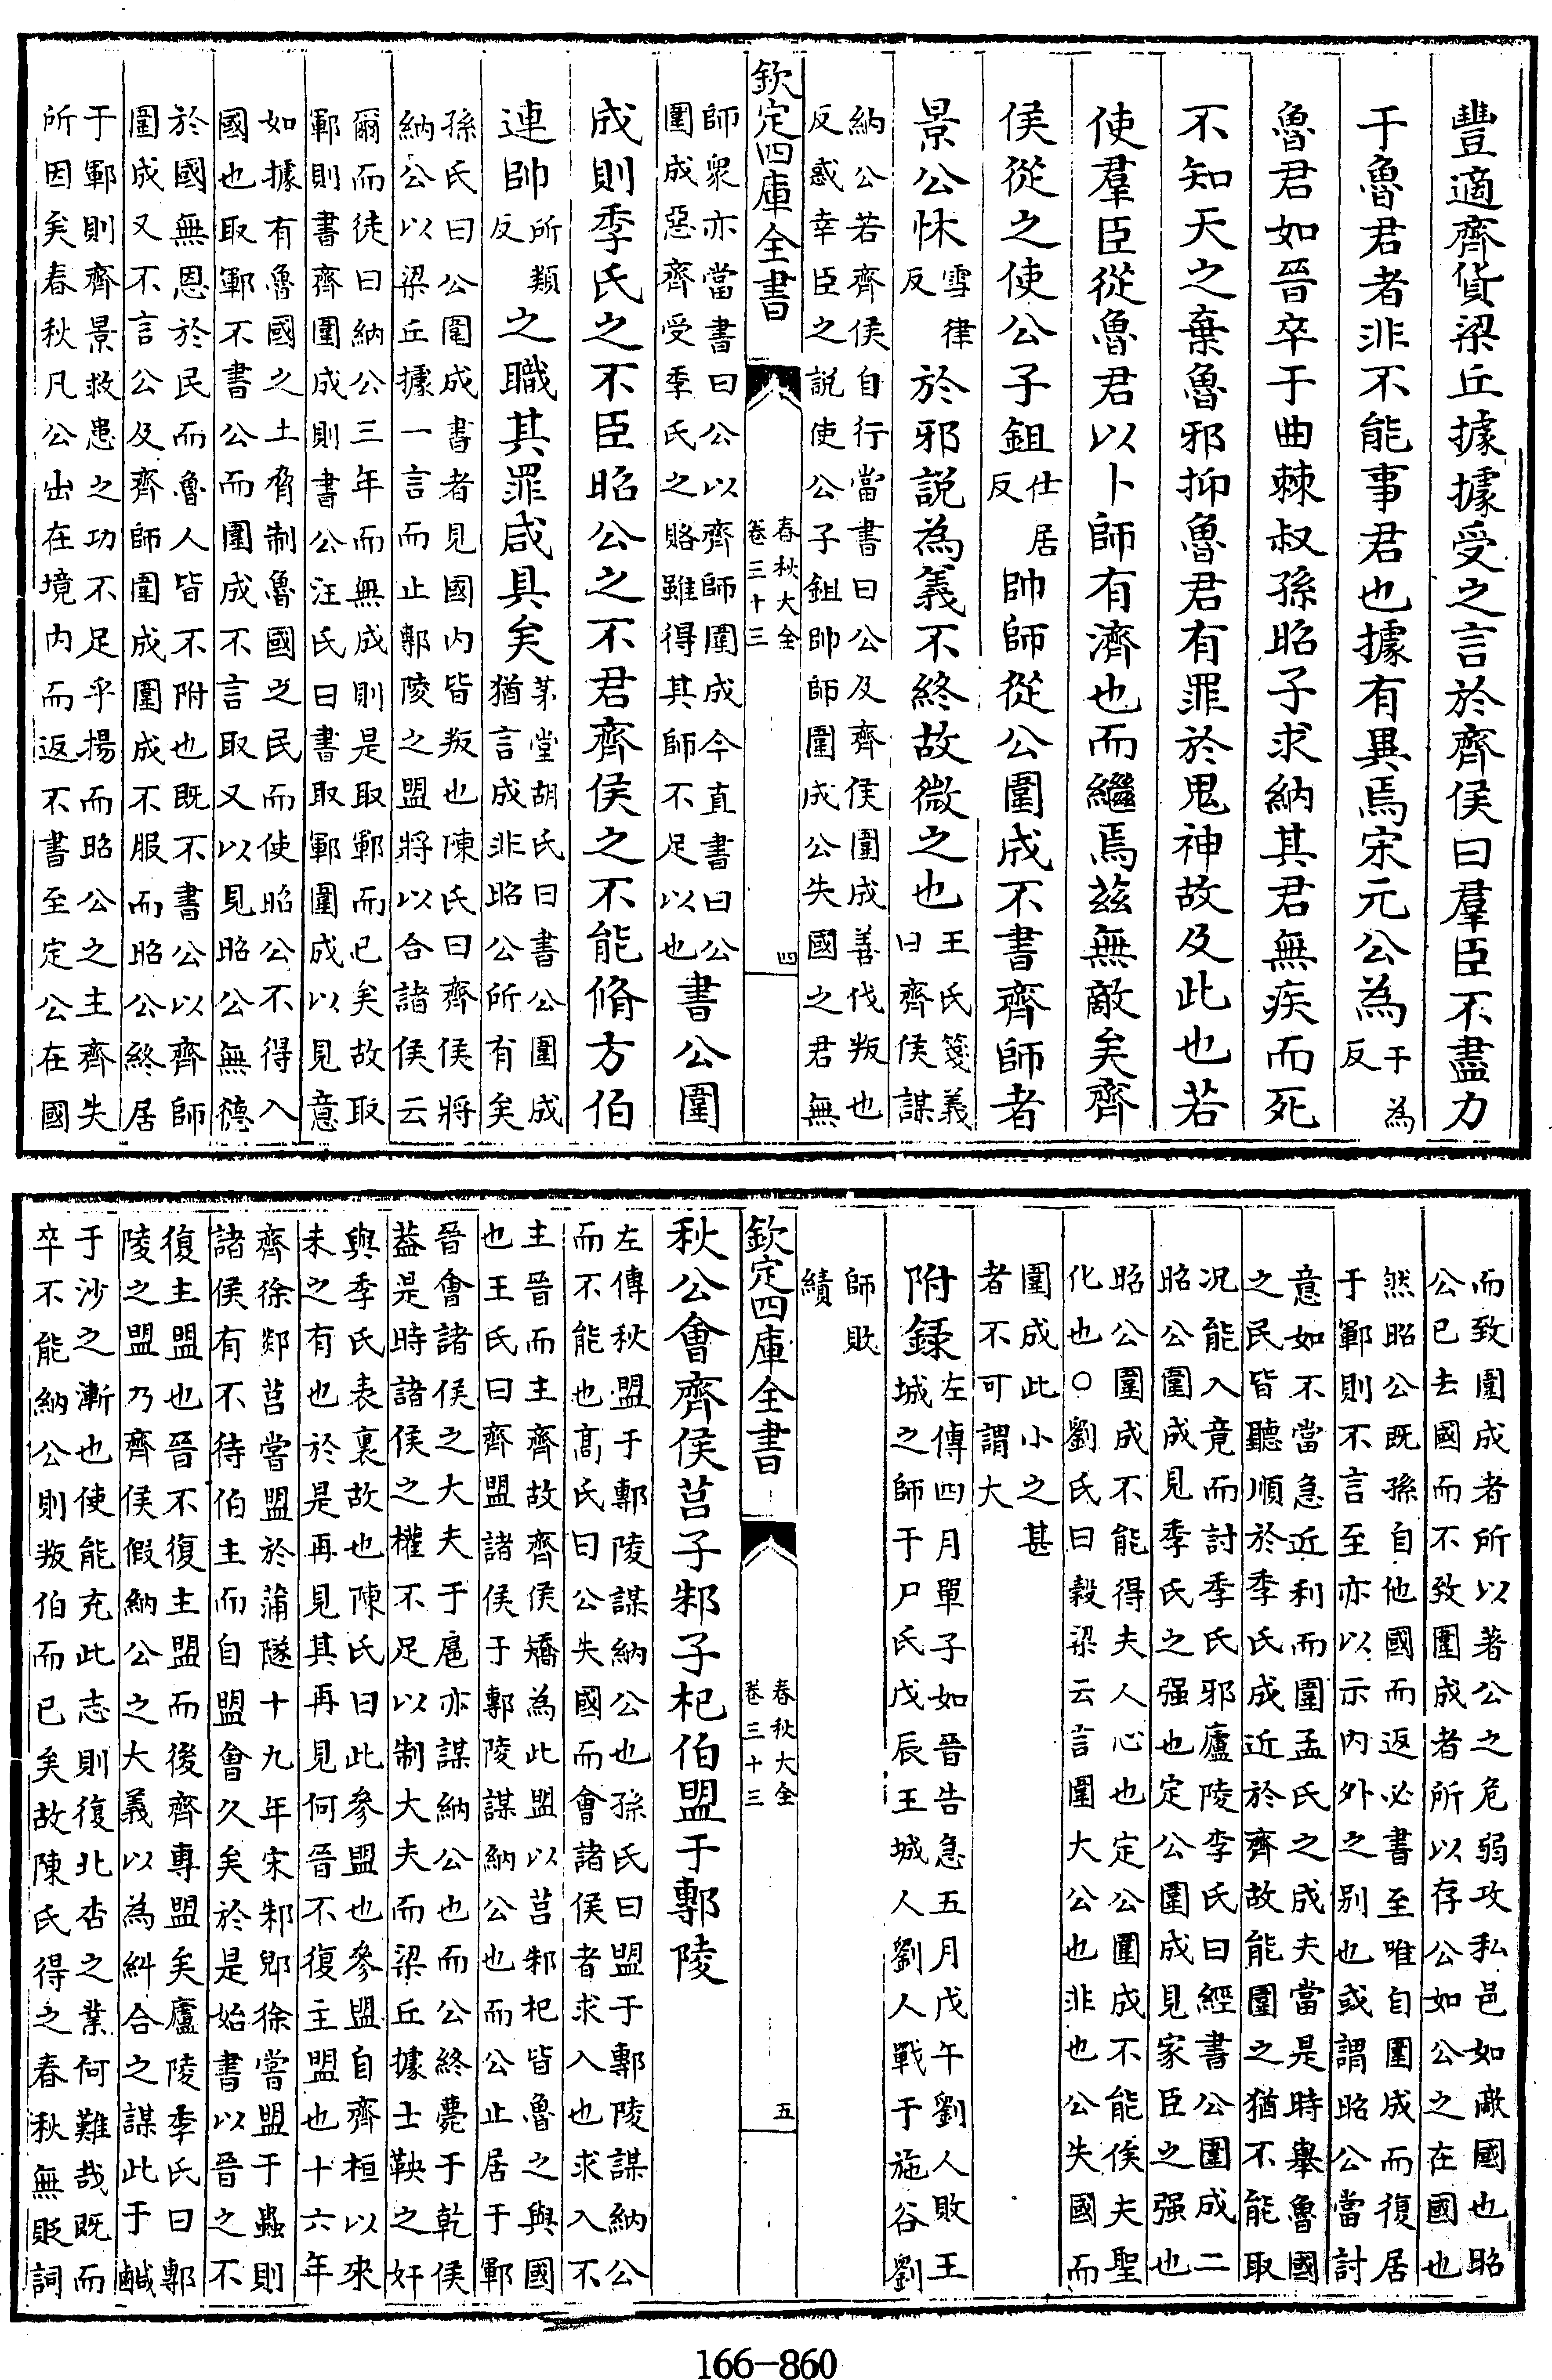 豐適齊貨梁丘據據受之言於齊侯曰羣臣不盡力
于魯君者非不能事君也據有異焉宋元公為于為反
魯君如晉卒于曲棘叔孫昭子求納其君無疾而死
不知天之棄魯邪抑魯君有罪於鬼神故及此也若
使羣臣從魯君以卜師有濟也而繼焉茲無敵矣齊
侯從之使公子鉏仕居反帥師從公圍成不書齊師者
景公怵雪律反於邪說為義不終故微之也王氏箋義
曰齊侯謀
納公若齊侯自行當書曰公及齊侯圍成善伐叛也
反惑幸臣之説使公子鉏帥師圍成公失國之君無
欽定四庫全書
春秋大全
卷三十三
四
師衆亦當書曰公以齊師圍成今直書曰公
圍成惡齊受季氏之賂雖得其師不足以也書公圍
成則季氏之不臣昭公之不君齊侯之不能脩方伯
連帥所類反之職其罪咸具矣茅堂胡氏曰書公圍成
猶言成非昭公所有矣
孫氏曰公圍成書者見國内皆叛也陳氏曰齊侯將
納公以梁丘據一言而止鄟陵之盟將以合諸侯云
爾而徒曰納公三年而無成則是取鄆而已矣故取
鄆則書齊圍成則書公汪氏曰書取鄆圍成以見意
如據有魯國之土脅制魯國之民而使昭公不得入
國也取鄆不書公而圍成不言取又以見昭公無德
於國無恩於民而魯人皆不附也既不書公以齊師
圍成又不言公及齊師圍成圍成不服而昭公終居
于鄆則齊景救患之功不足乎揚而昭公之主齊失
所因矣春秋凡公出在境内而返不書至定公在國
而致圍成者所以著公之危弱攻私邑如敵國也昭
公已去國而不致圍成者所以存公如公之在國也
然昭公既孫自他國而返必書至唯自圍成而復居
于鄆則不言至亦以示内外之别也或謂昭公當討
意如不當急近利而圍孟氏之成夫當是時舉魯國
之民皆聽順於季氏成近於齊故能圍之猶不能取
况能入竟而討季氏邪廬陵李氏曰經書公圍成二
昭公圍成見季氏之强也定公圍成見家臣之强也
昭公圍成不能得夫人心也定公圍成不能俟夫聖
化也○劉氏曰穀梁云言圍大公也非也公失國而
圍成此小之甚
者不可謂大
附録左傳四月單子如晉告急五月戊午劉人敗王
城之師于尸氏戊辰王城人劉人戰于施谷劉
師敗
績
欽定四庫全書
春秋大全
卷三十三
五
秋公會齊侯莒子邾子杞伯盟于鄟陵
左傳秋盟于鄟陵謀納公也孫氏曰盟于鄟陵謀納公
而不能也髙氏曰公失國而會諸侯者求入也求入不
主晉而主齊故齊侯矯為此盟以莒邾杞皆魯之與國
也王氏曰齊盟諸侯于鄟陵謀納公也而公止居于鄆
晉會諸侯之大夫于扈亦謀納公也而公終薨于乾侯
葢是時諸侯之權不足以制大夫而梁丘據士鞅之奸
與季氏表裏故也陳氏曰此參盟也參盟自齊桓以來
未之有也於是再見其再見何晉不復主盟也十六年
齊徐郯莒嘗盟於蒲隧十九年宋邾郳徐嘗盟于蟲則
諸侯有不待伯主而自盟會久矣於是始書以晉之不
復主盟也晉不復主盟而後齊專盟矣廬陵李氏曰鄟
陵之盟乃齊侯假納公之大義以為糾合之謀此于鹹
于沙之漸也使能充此志則復北杏之業何難哉既而
卒不能納公則叛伯而已矣故陳氏得之春秋無貶詞
166-860